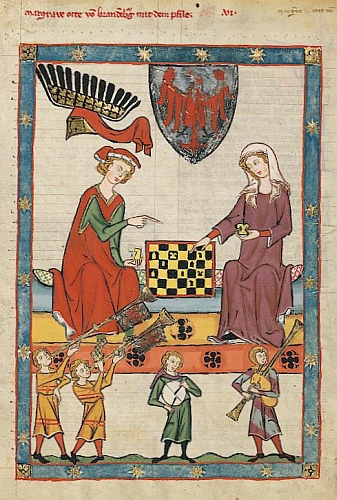 Margraue otte vō brandeburg mit dem pfile. .VI.